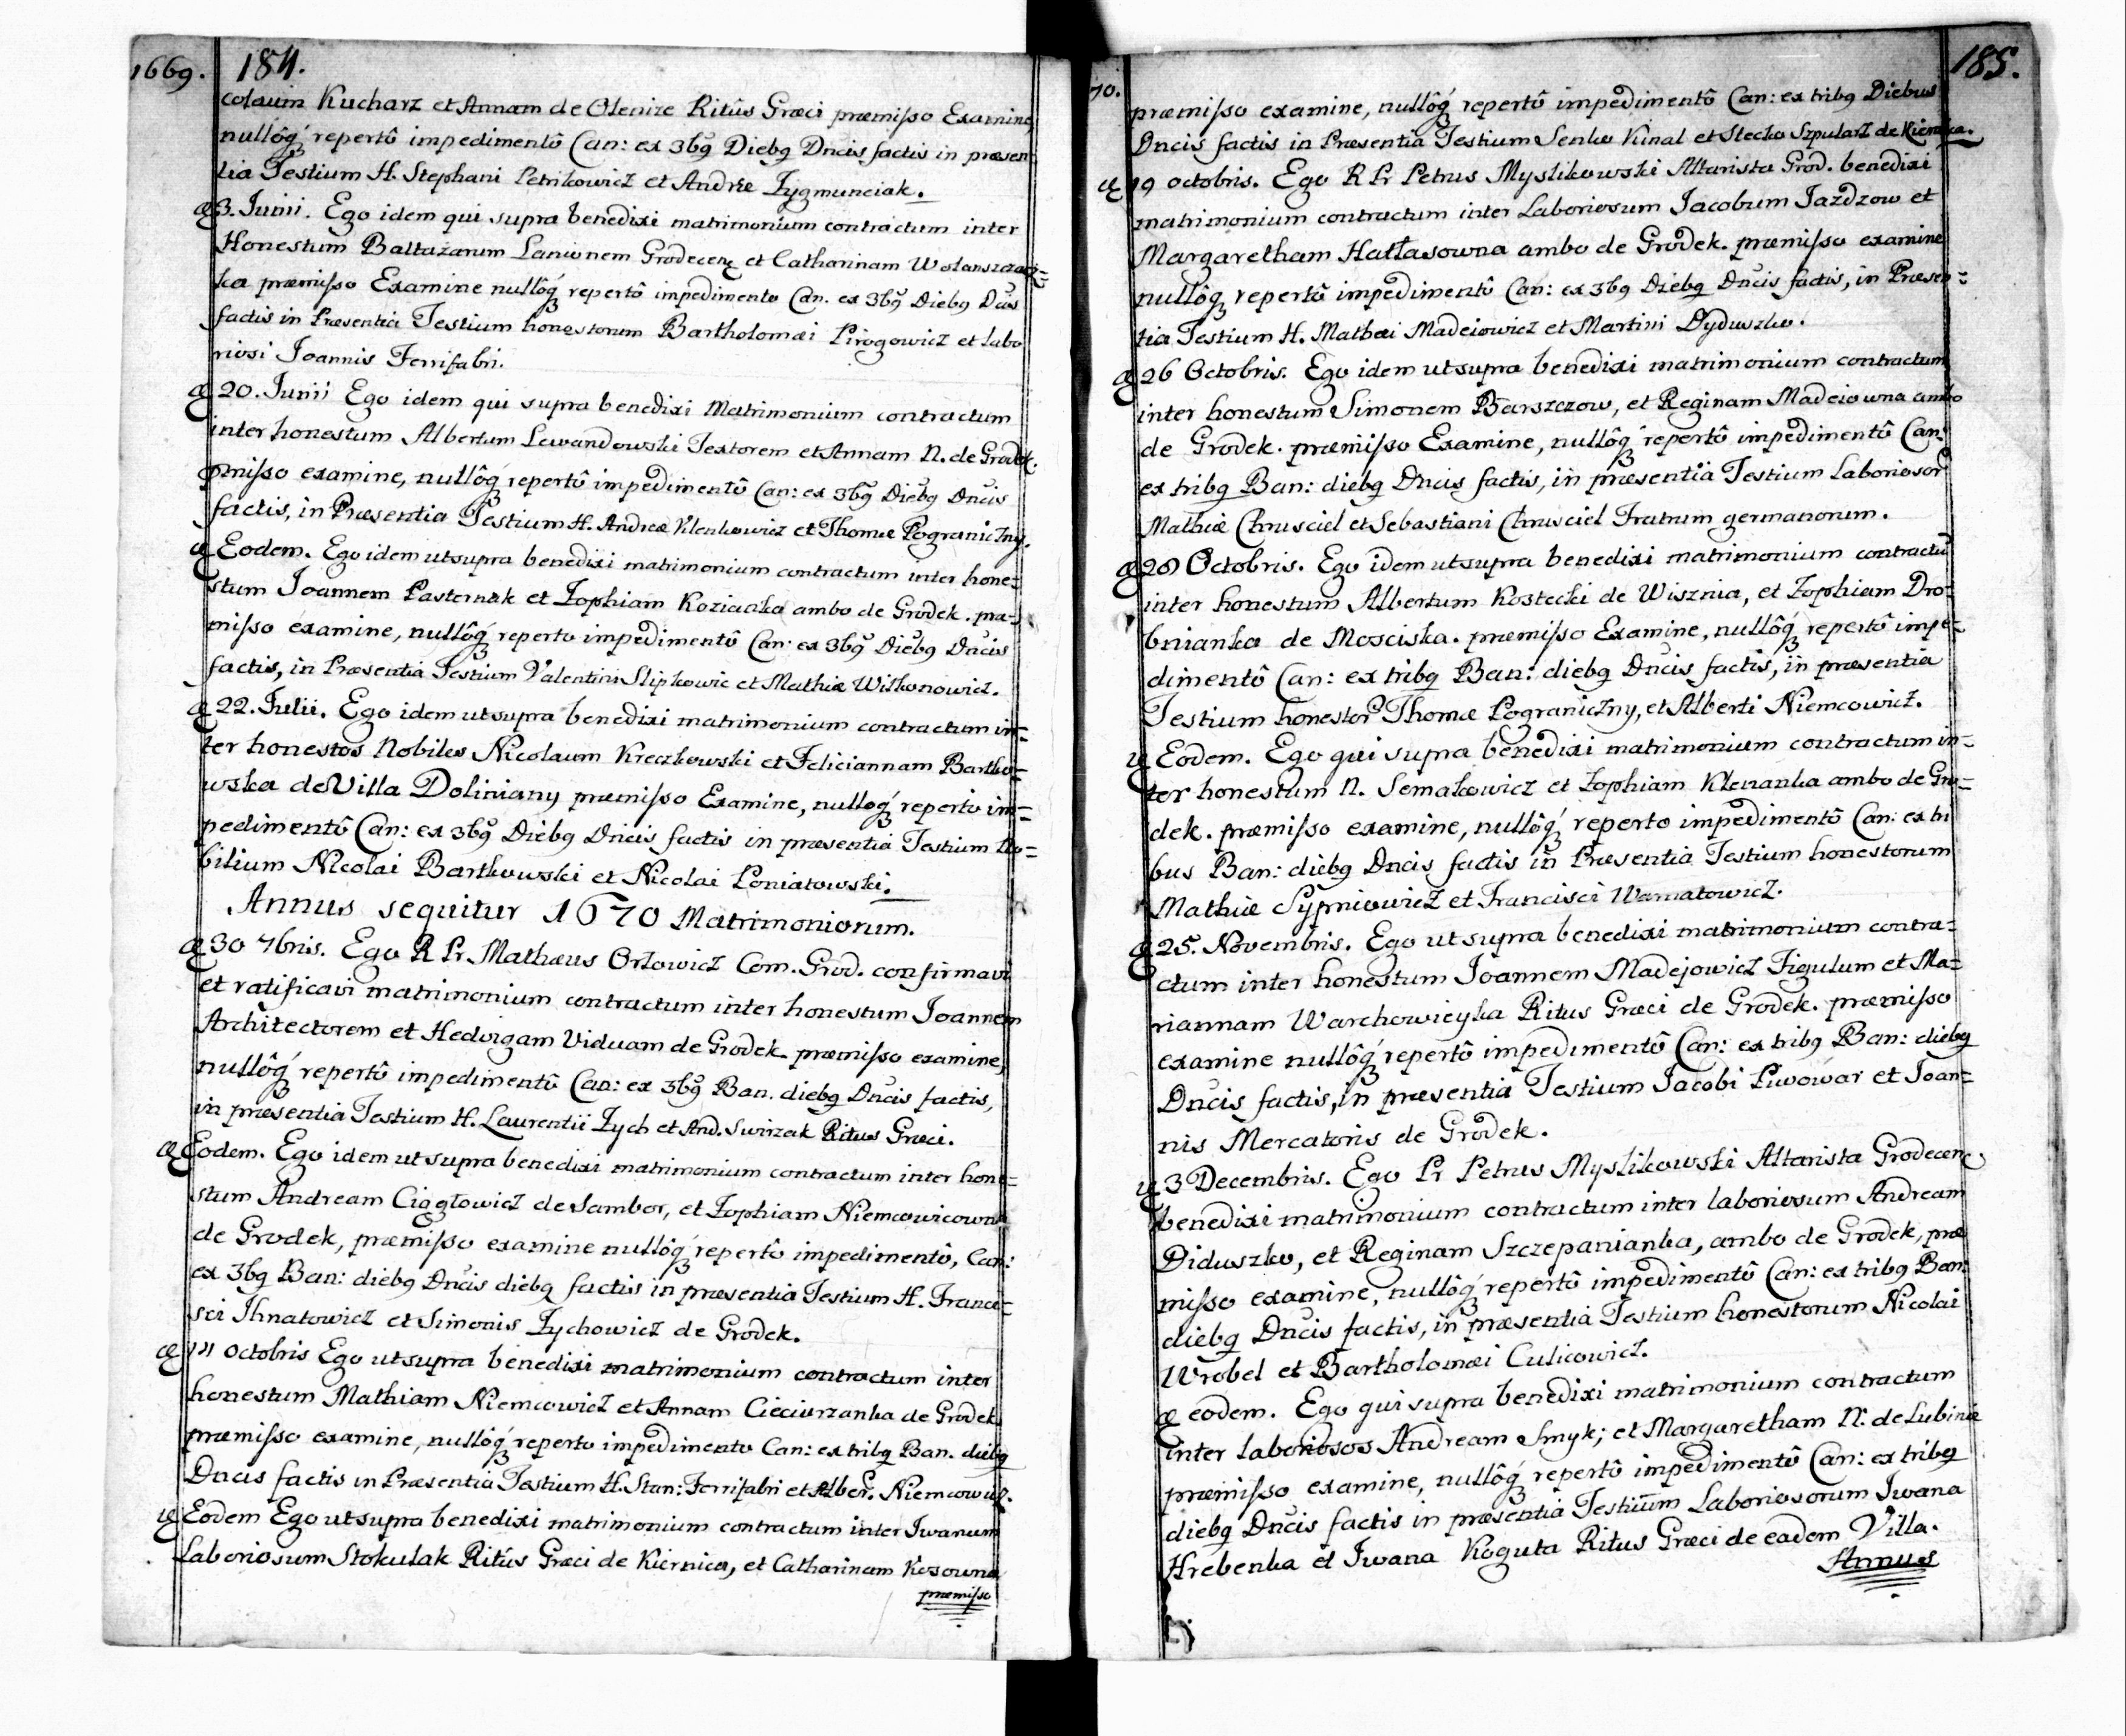 1669. 184.
colaum Kucharz et Annam de Olenize Ritûs Græci præmisso Examine,
nullôq́ꝫ repertô impedimentô Can: ex 3bꝰ Diebꝰ Dncis factis in præsen-
tia Testium H. Stephani Petrikowicz et Andræ Zygmunciak.
æ 3. Junii. Ego idem qui supra benedixi matrimonium contractum inter
Honestum Baltazarum Lanionem Grodecenꝫ et Catharinam Wolanszczan=
ka præmisso Examine nullôq́ꝫ repertô impedimento Can. ex 3bꝰ Diebꝰ Dcis
factis in Præsentia Testium honestorum Bartholomæi Pirogowicz et labo
riosi Joannis Ferrifabri.
æ 20. Junii Ego idem qui supra benedixi Matrimonium contractum
inter honestum Albertum Lewandowski Textorem et Annam N. de Grodek.
pmisso examine, nullôq́ꝫ repertô impedimentô Can: ex 3bꝰ Diebꝰ Dncis
factis, in Præsentia Testium H. Andreæ Klenkowicz et Thomæ Pograniczny.
æ Eodem. Ego idem ut supra benedixi matrimonium contractum inter hone=
stum Joannem Pasternak et Zophiam Koziacka ambo de Grodek. præ-
misso examine, nullôq́ꝫ reperto impedimentô Can: ex 3bꝰ Diebꝰ Dncis
factis, in Præsentia Testium Valentini Slipkowic et Mathiæ Witkonowicz.
æ 22. Julii. Ego idem ut supra benedixi matrimonium contractum in=
ter honestos Nobiles Nicolaum Kreczkowski et Feliciannam Bartko=
wska de Villa Doliniany præmisso Examine, nulloq́ꝫ reperto im=
pedimentô Can: ex 3bꝰ Diebꝰ Dncis factis in præsentia Testium No=
bilium Nicolai Bartkowski et Nicolai Poniatowski.
Annus sequitur 1670 Matrimoniorum.
æ 30 7bris. Ego R Pr. Mathæus Orłowicz Com. Grod. confirmavi
et ratificavi matrimonium contractum inter honestum Joannem
Architectorem et Hedvigam Viduam de Grodek. præmisso examine,
nullôq́ꝫ repertô impedimentô Can: ex 3bꝰ Ban. diebꝰ Dncis factis,
in præsentia Testium H. Laurentii Zych et And. Swirzak Ritus Græci.
æ Eodem. Ego idem ut supra benedixi matrimonium contractum inter hone=
stum Andream Ciągłowicz de Sambor, et Zophiam Niemcowicowna
de Grodek, præmisso examine nullôq́ꝫ repertô impedimentô, Can:
ex 3bꝰ Ban: diebꝰ Dncis diebꝰ factis in præsentia Testium H. Franci=
sci Ihnatowicz et Simonis Zychowicz de Grodek.
æ 14 octobris Ego ut supra benedixi matrimonium contractum inter
honestum Mathiam Niemcowicz et Annam Cieciurzanka de Grodek
præmisso examine, nullôq́ꝫ reperto impedimento Can: ex tribꝰ Ban. diebꝰ
Dncis factis in Præsentia Testium H. Stan: Ferrifabri et Alber. Niemcowicz.
æ Eodem Ego ut supra benedixi matrimonium contractum inter Iwanum
Laboriosum Stokulak Ritûs Græci de Kiernica, et Catharinam Kosowna
præmisso
70. 185.
præmisso examine, nullôq́ꝫ repertô impedimentô Can: ex tribꝰ Diebus
Dncis factis in Præsentia Testium Senko Kunal et Stecko Szpularz de Kiernica.
æ 19 octobris. Ego R Pr Petrus Myslikowski Altarista Grod. benedixi
matrimonium contractum inter Laboriosum Jacobum Jazdzow et
Margaretham Hałłasowna ambo de Grodek. præmisso examine
nullôqꝫ repertô impedimentô Can: ex 3bꝰ Diebꝰ Dncis factis, in Præsen=
tia Testium H. Mathæi Madeiowicz et Martini Dyduszko.
æ 26 Octobris. Ego idem ut supra benedixi matrimonium contractum
inter honestum Simonem Barszczow, et Reginam Madeiowna ambo
de Grodek. præmisso Examine, nullôq́ꝫ repertô impedimentô Can:
ex tribꝰ Ban: diebꝰ Dncis factis, in præsentia Testium Laborioser
Mathiæ Chrusciel et Sebastiani Chrusciel Fratrum germanorum.
æ 28 Octobris. Ego idem ut supra benedixi matrimonium contractũ
inter honestum Albertum Kostecki de Wisznia, et Zophiam Dro=
bnianka de Mosciska. præmisso Examine, nullôq́ꝫ repertô impe=
dimentô Can: ex tribꝰ Ban: diebꝰ Dncis factis, in præsentia
Testium honestor Thomæ Pograniczny, et Alberti Niemcowicz.
æ Eodem. Ego qui supra benedixi matrimonium contractum in=
ter honestum N. Semakowicz et Zophiam Klenanka ambo de Gro=
dek. præmisso examine, nullôq́ꝫ reperto impedimentô Can: ex tri
bus Ban: diebꝰ Dncis factis in Præsentia Testium honestorum
Mathiæ Sypniowicz et Francisci Warnatowicz.
æ 25. Novembris. Ego ut supra benedixi matrimonium contra=
ctum inter honestum Joannem Madejowicz Figulum et Ma=
riannam Warchowicyka Ritus Græci de Grodek. præmisso
examine nullôq́ꝫ repertô impedimentô Can: ex tribꝰ Ban: diebꝰ
Dncis factis, in præsentia Testium Jacobi Piwowar et Joan=
nis Mercatoris de Grodek.
æ 3 Decembris. Ego Pr Petrus Myslikowski Altarista Grodecen
benedixi matrimonium contractum inter laboriosum Andream
Diduszko, et Reginam Szczepanianka, ambo de Grodek, præ
misso examine, nullôq́ꝫ repertô impedimentô Can: ex tribꝰ Ban:
diebꝰ Dncis factis, in præsentia Testium honestorum Nicolai
Wrobel et Bartholomæi Culicowicz.
æ eodem. Ego qui supra benedixi matrimonium contractum
inter laboriosos Andream Smyk; et Margaretham N. de Lubinie
præmisso examine, nullôq́ꝫ repertô impedimentô Can: ex tribꝰ
diebꝰ Dncis factis in præsentia Testium Laboriosorum Iwana
Hrebenka et Iwana Koguta Ritus Græci de eadem Villa.
Annus